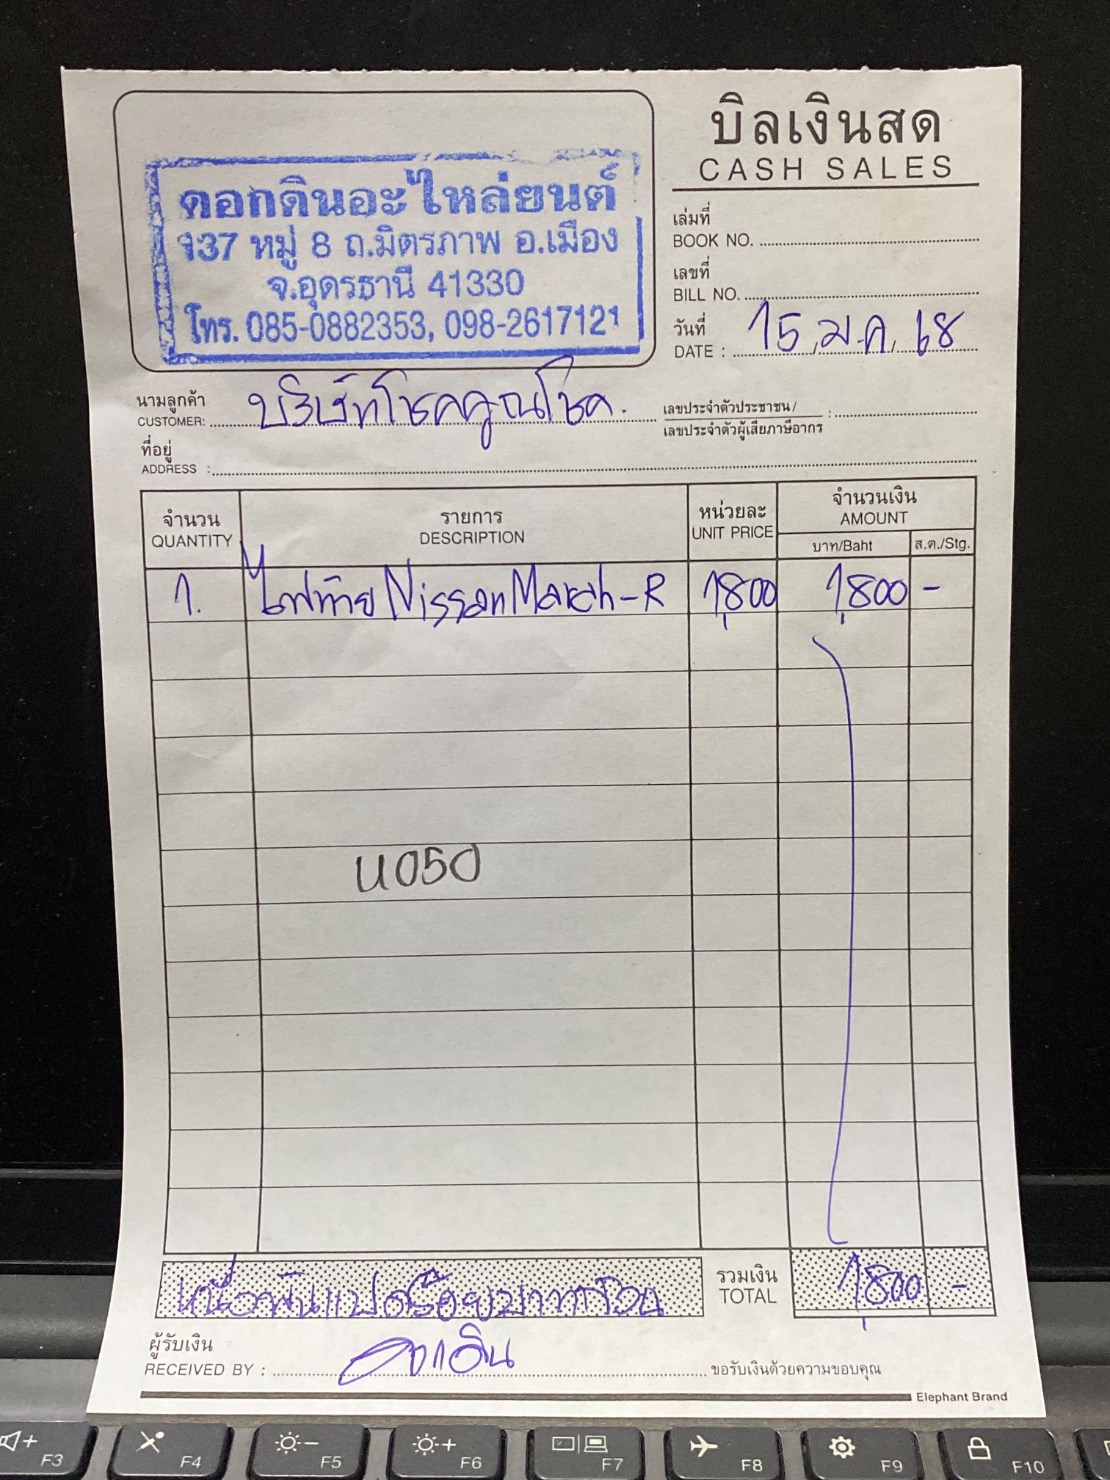 บิลเงินสด
CASH SALES
ดอกดินอะไหล่ยนต์
137 หมู่ 8 ถ.มิตรภาพ อ.เมือง
จ.อุดรธานี 41330
โทร. 085-0882353, 098-2617121
เล่มที่
BOOK NO.
เลขที่
BILL NO.
วันที่
DATE : 15 ม.ค. 68
นามลูกค้า
CUSTOMER: บริษัทโชคคูณโชค.
เลขประจำตัวประชาชน/
เลขประจำตัวผู้เสียภาษีอากร :
ที่อยู่
ADDRESS :
จำนวน รายการ หน่วยละ จำนวนเงิน
QUANTITY DESCRIPTION UNIT PRICE AMOUNT
บาท/Baht ส.ต./Stg.
1. ไฟท้าย Nissan March-R 1,800 1,800 -
น050
หนึ่งพันแปดร้อยบาทถ้วน
รวมเงิน
TOTAL 1,800 -
ผู้รับเงิน
RECEIVED BY : ดอกดิน ขอรับเงินด้วยความขอบคุณ
Elephant Brand
F3 F4 F5 F6 F7 F8 F9 F10